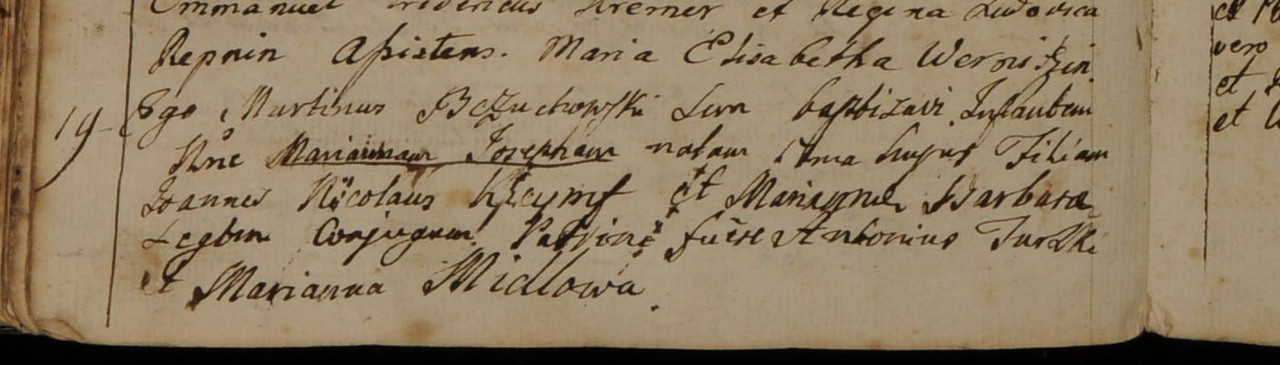 Emmanuel Fridericus Kremer et Regina Ludovica
Repnin Assistens. Maria Elisabetha
19 Ego Martinus Bczuchowski Cum baptizavi Infantem
Nne Mariannam Josepham natam 17ma hujus Filiam
Joannes Nicolaus et Marianne Barbara
Legtim Conjugum. Patrini fuere Antonius Turski
et Marianna Midlowa.
et
vero
et
et